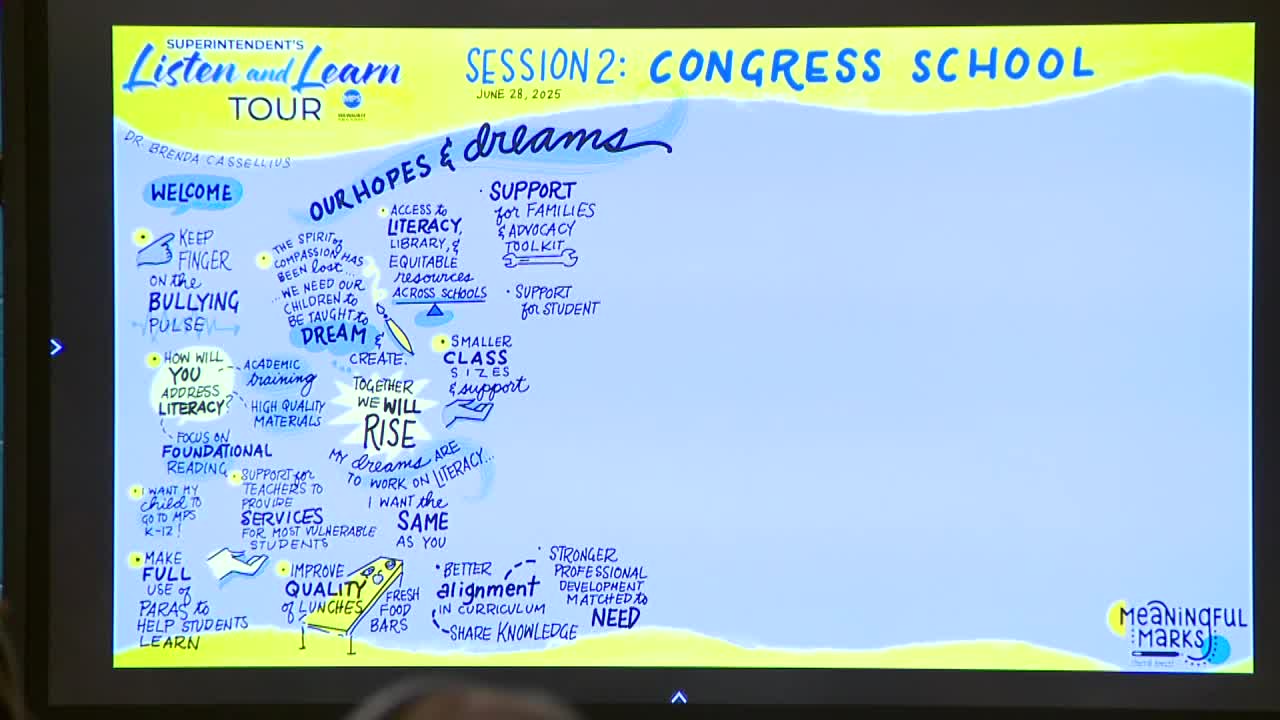 SUPERINTENDENT'S
Listen and Learn
TOUR
MPS
SESSION 2: CONGRESS SCHOOL
JUNE 28, 2025
DR. BRENDA CASSELLIUS
WELCOME
OUR HOPES & dreams
KEEP
FINGER
ON the
BULLYING
PULSE
THE SPIRIT of
COMPASSION HAS
BEEN lost...
...WE NEED OUR
CHILDREN to
BE TAUGHT to
DREAM &
CREATE.
• ACCESS to
LITERACY,
LIBRARY, &
EQUITABLE
resources
ACROSS SCHOOLS
• SUPPORT
for FAMILIES
& ADVOCACY
TOOLKIT
• SUPPORT
for STUDENT
• SMALLER
CLASS
SIZES
& support
• HOW WILL
YOU
ADDRESS
LITERACY?
ACADEMIC
training
HIGH QUALITY
MATERIALS
FOCUS ON
FOUNDATIONAL
READING
TOGETHER
WE WILL
RISE
MY dreams ARE
TO WORK ON LITERACY...
• I WANT MY
child TO
GO TO MPS
K-12!
• SUPPORT for
TEACHERS TO
PROVIDE
SERVICES
FOR MOST VULNERABLE
STUDENTS
I WANT the
SAME
AS YOU
• MAKE
FULL
USE of
PARAS to
HELP STUDENTS
LEARN
• IMPROVE
QUALITY
of LUNCHES
FRESH
FOOD
BARS
• BETTER
alignment
IN CURRICULUM
SHARE KNOWLEDGE
• STRONGER
PROFESSIONAL
DEVELOPMENT
MATCHED to
NEED
MEANINGFUL
MARKS